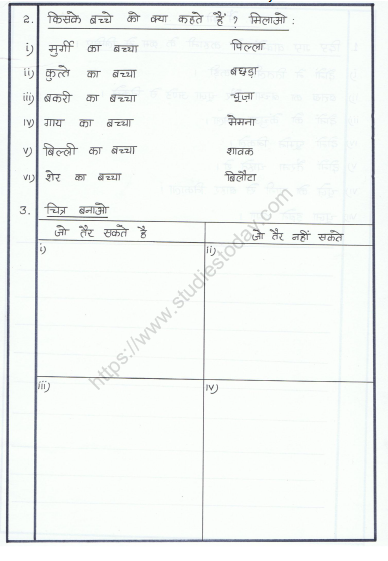 2. किसके बच्चे को क्या कहते हैं ? मिलाओ :
i) मुर्गी का बच्चा पिल्ला
ii) कुत्ते का बच्चा बछड़ा
iii) बकरी का बच्चा चूज़ा
iv) गाय का बच्चा मेमना
v) बिल्ली का बच्चा शावक
vi) शेर का बच्चा बिलौटा
3. चित्र बनाओ
जो तैर सकते है जो तैर नहीं सकते
i) ii)
iii) iv)
https://www.studiestoday.com